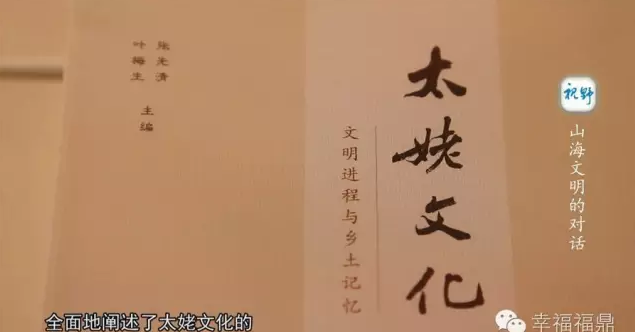 太姥文化
文明进程与乡土记忆
张先清
叶梅生
主编
视野
山海文明的对话
全面地阐述了太姥文化的
幸福福鼎